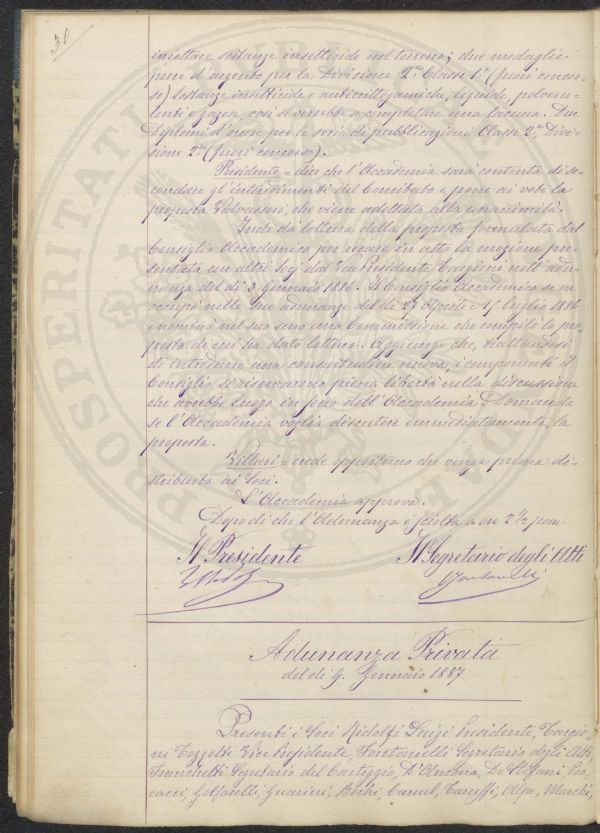 30
iniettare sostanze insetticide nel terreno; due medaglie
pure d'argento per la Divisione 2ª Classe 1ª (fuori concor-
so) sostanze insetticide e anticrittogamiche, liquide, polveru-
lenti e gazose, così si verrebbe a completare una lacuna. Due
Diplomi d'onore per le serie di pubblicazioni Classe 2ª Divi-
sione 2ª (fuori concorso).
Presidente = dice che l'Accademia sarà contenta di se-
condare gl'intendimenti del Comitato e pone ai voti la
proposta Valvassori, che viene adottata alla unanimità.
Indi dà lettura della proposta formulata dal
Consiglio Accademico per recare in atto la mozione pre-
sentata con altri Soci dal Vice Presidente Targioni nell'adu-
nanza del dì 3 Gennaio 1886. Il Consiglio Accademico se ne
occupò nelle due adunanze del dì 27 Aprile e 15 Luglio 1886
e nominò nel suo seno una Commissione che compilò la pro-
posta di cui ha dato lettura. Aggiunge che, trattandosi
di introdurre una consuetudine nuova, i componenti il
Consiglio si riservarono piena libertà nella discussione
che avrebbe luogo in seno dell'Accademia. Domanda
se l'Accademia voglia discutere immediatamente, la
proposta.
Villari = crede opportuno che venga prima di-
stribuita ai Soci.
L'Accademia approva.
Dopo di che l'Adunanza è sciolta a ore 2 1/2 pom.
Il Presidente Il Segretario degli Atti
L Ridolfi Fontanelli
Adunanza Privata
del dì 9 Gennaio 1887
Presenti i Soci Ridolfi Luigi Presidente, Targio-
ni Tozzetti Vice Presidente, Fontanelli Segretario degli Atti,
Franchetti Segretario del Carteggio, D'Ancona, De Stefani,
Golfarelli, Guarini, Bechi, Caruel, Caruffi, Alpe, Marchi,
PROSPERITATI